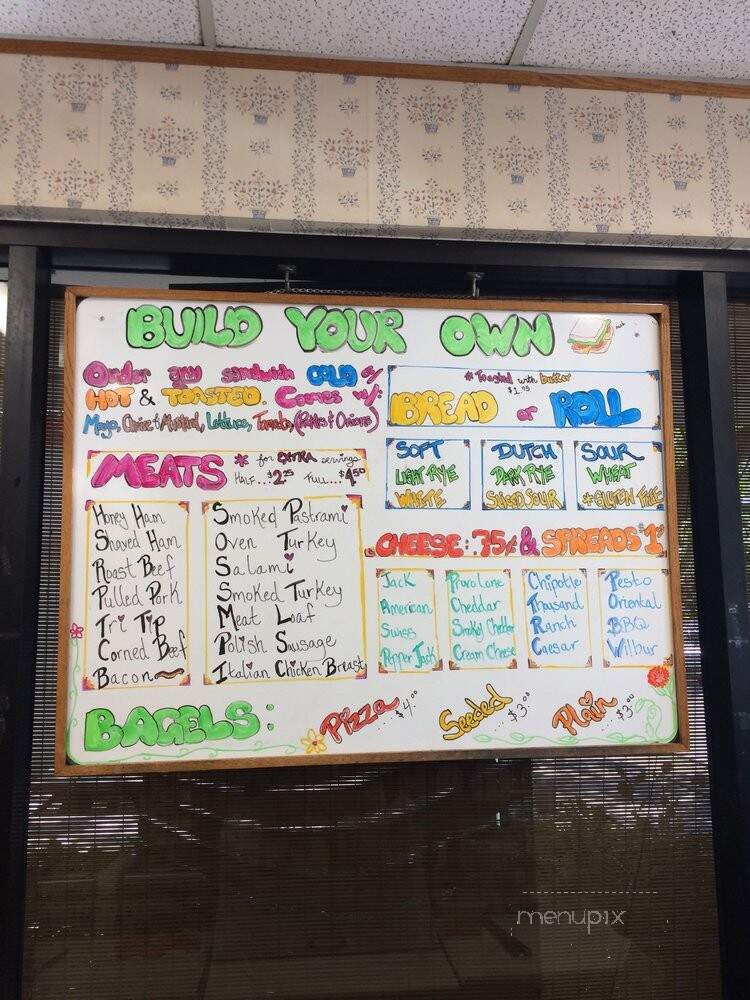 BUILD YOUR OWN
Order any sandwich COLD or
HOT & TOASTED. Comes w/:
Mayo, Onions & Mustard, Lettuce, Tomato, (Pickles & Onions)
* Toasted with butter
$1.75
BREAD or ROLL
MEATS * for EXTRA servings
HALF...$2.25 FULL...$4.50
SOFT
LIGHT RYE
WHITE
DUTCH
DARK RYE
SLICED SOUR
SOUR
WHEAT
*GLUTEN FREE
Honey Ham
Shaved Ham
Roast Beef
Pulled Pork
Tri Tip
Corned Beef
Bacon
Smoked Pastrami
Oven Turkey
Salami
Smoked Turkey
Meat Loaf
Polish Sausage
Italian Chicken Breast
CHEESE: 75¢ & SPREADS $1
Jack
American
Swiss
Pepper Jack
Provolone
Cheddar
Smoked Cheddar
Cream Cheese
Chipotle
Thousand
Ranch
Caesar
Pesto
Oriental
BBQ
Wilbur
BAGELS:
Pizza $4.00
Seeded $3.00
Plain $3.00
menupix